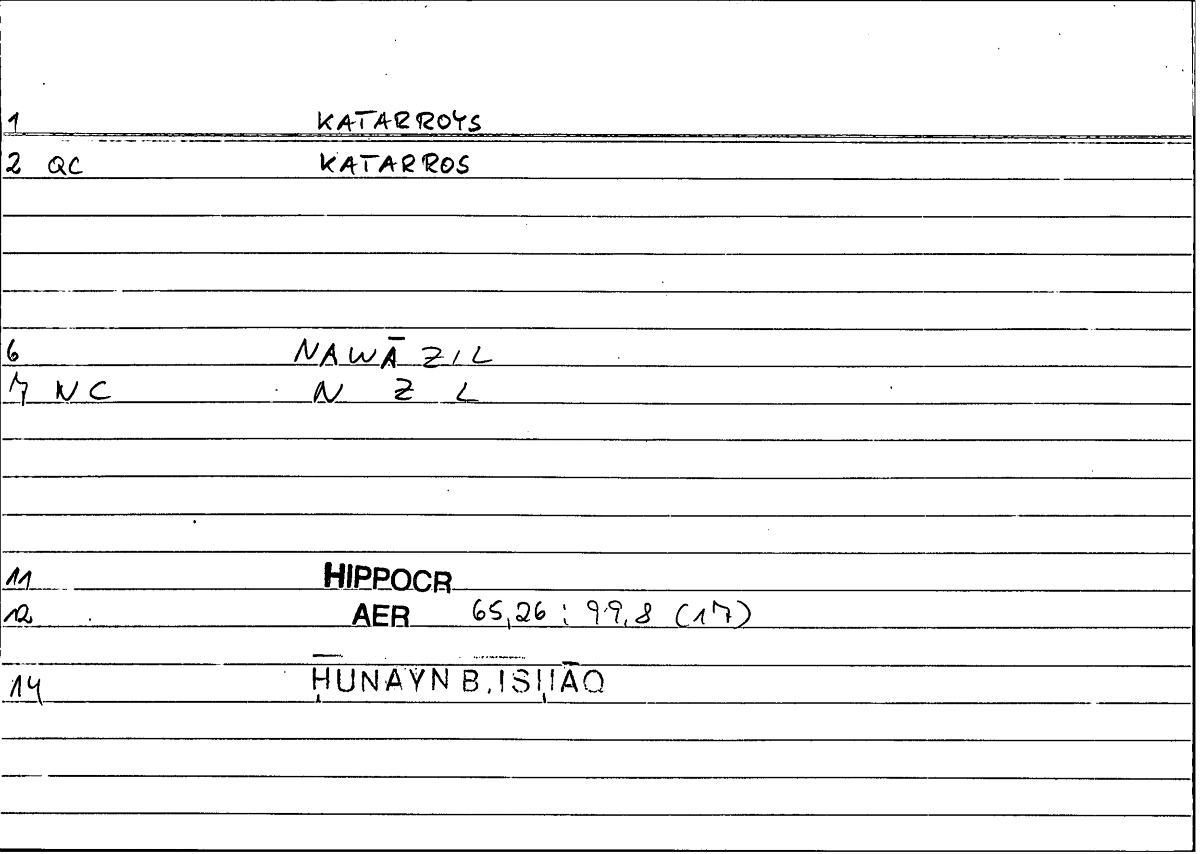 1 KATARROYS
2 QC KATARROS
6 NAWĀZIL
7 NC N Z L
11 HIPPOCR
12 AER 65,26 : 99,8 (17)
14 ḤUNAYN B. ISḤĀQ